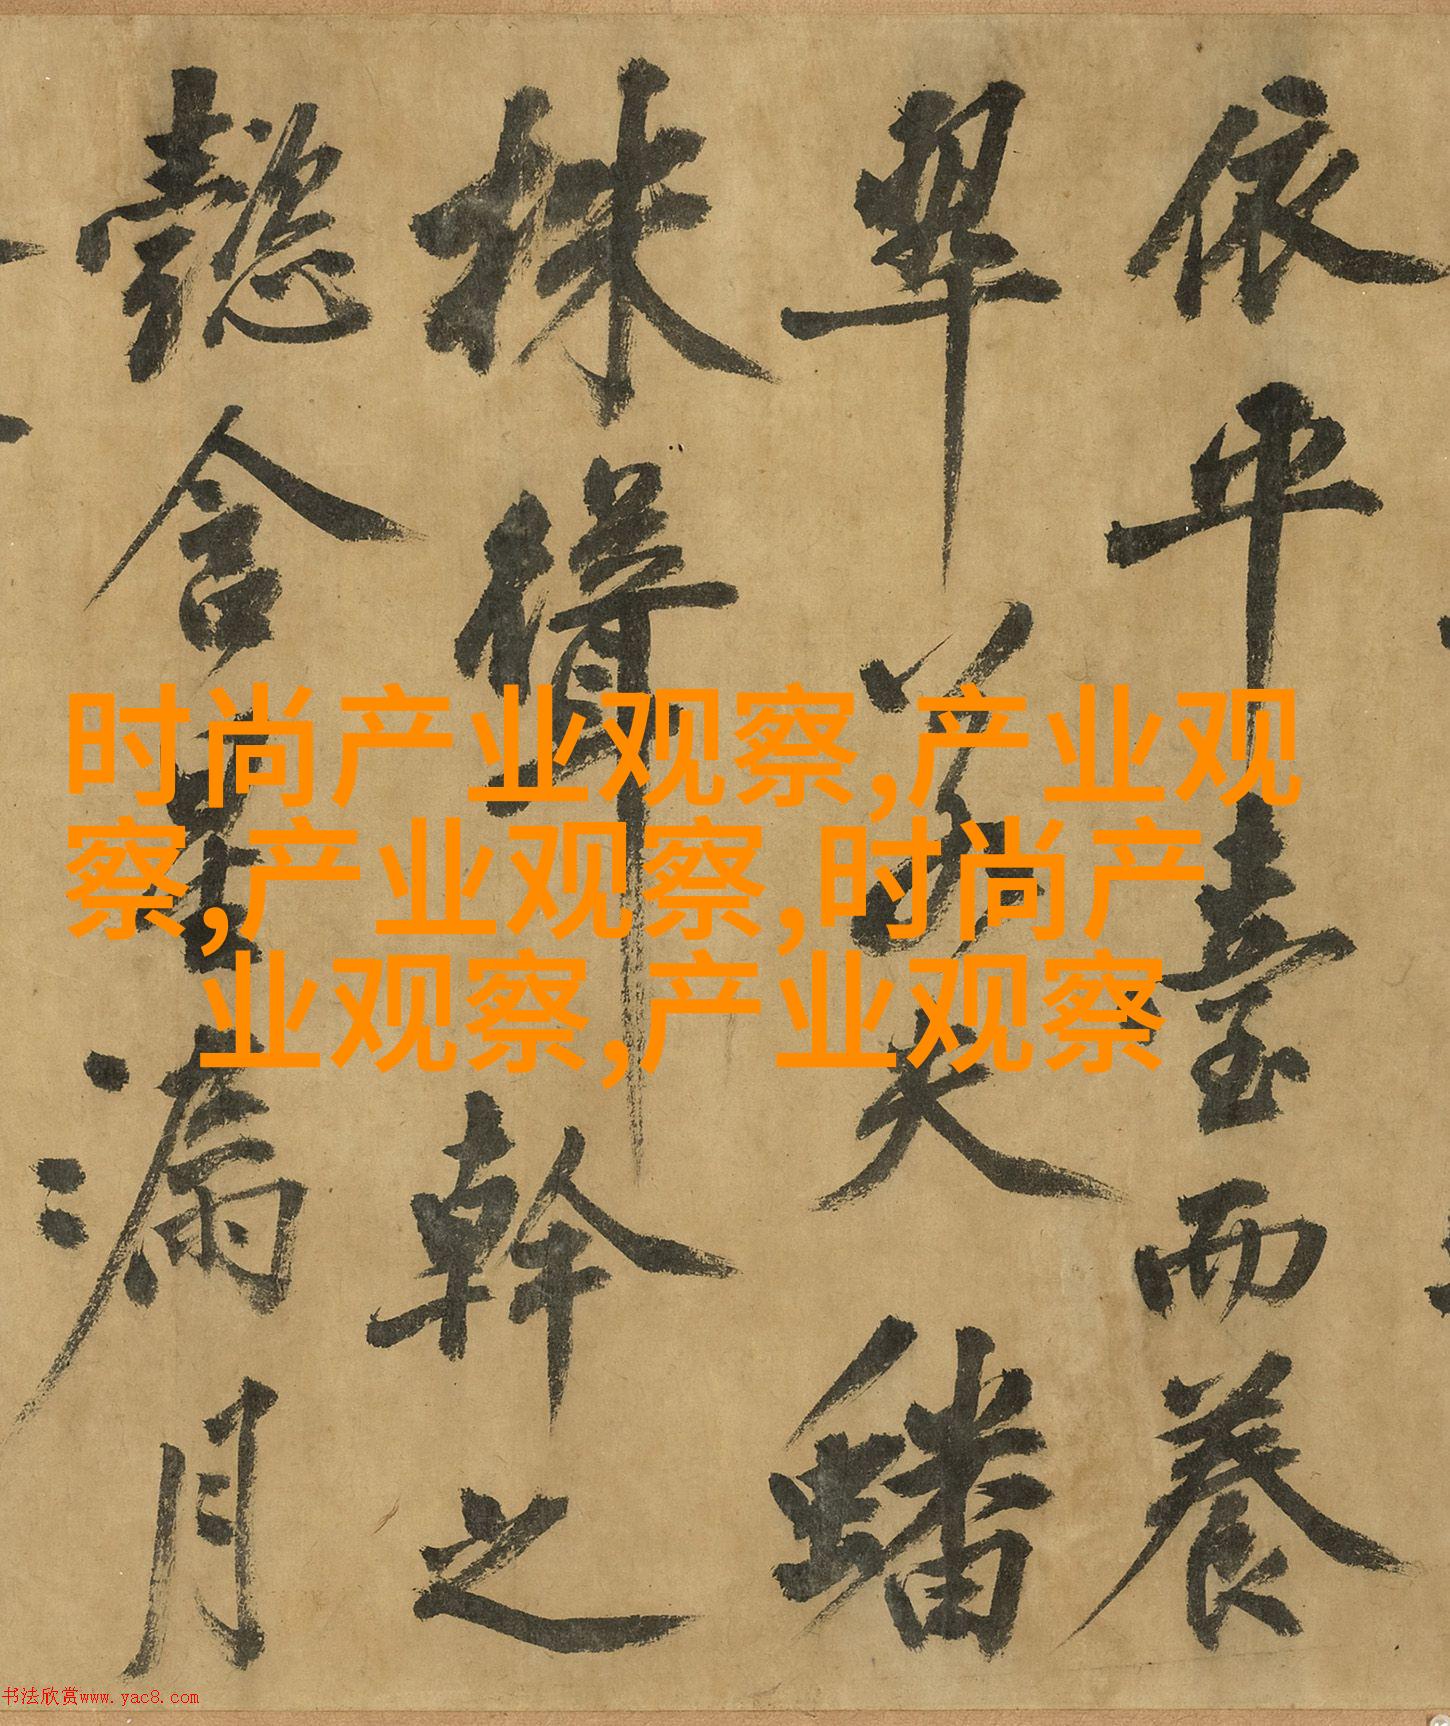 依平臺而養
翠若夫蟠
株聳幹之
懿含星漏月
时尚产业观察,产业观
察,产业观察,时尚产
业观察,产业观察
书法欣赏www.yac8.com